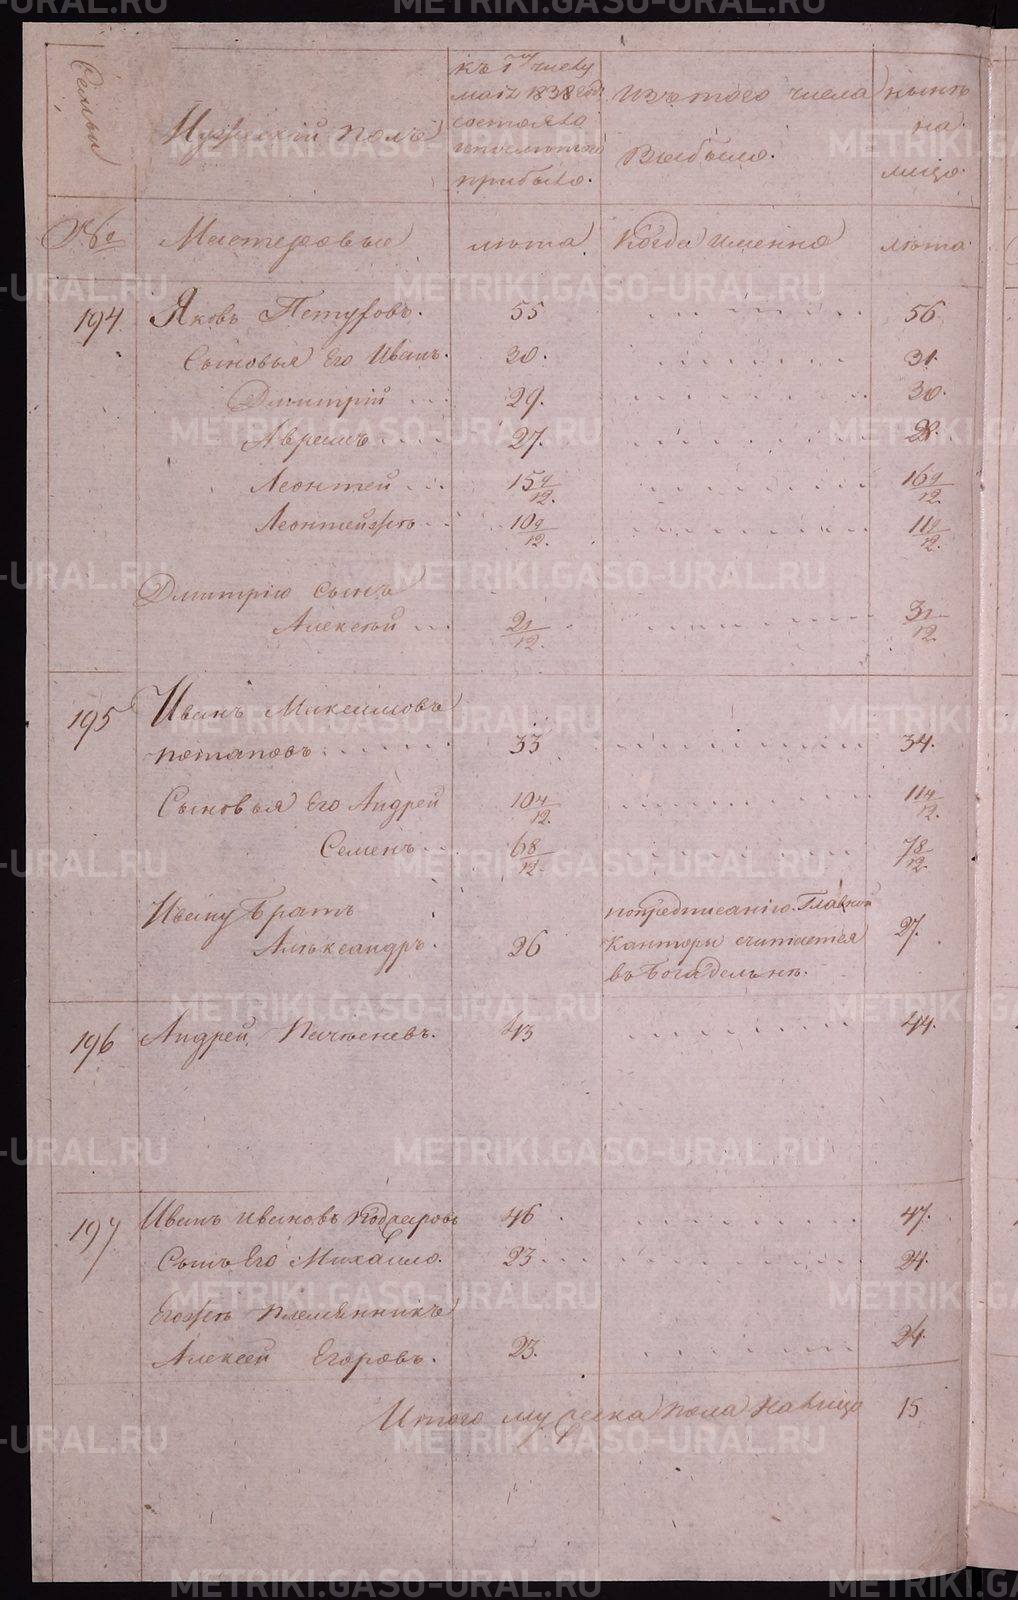 Семьи
Мужескій полъ
къ 1му числу
маія 1838 год
состояло
прибыло.
Изъ того числа
Выбыло.
нынѣ
на
лицо.
№
Мастеровые
лѣта
Когда именно
лѣта
194 Яковъ Петуховъ. 55 56
Сыновья Его Иванъ. 30. 31.
Дмитрій 29. 30.
Авраамъ 27. 28.
Леонтей 15 4/12. 16 4/12.
Леонтей же 10 9/12. 11 9/12.
Дмитрію сынъ
Алексѣй 2 1/12. 3 1/12.
195 Иванъ Максимовъ
потаповъ 33 34.
Сыновья Его Андрей 10 4/12. 11 4/12.
Семенъ 6 8/12. 7 8/12.
Ивану братъ
Александръ. 26 27.
попредписанію Главной
Канторы считается
въ Богадельнѣ.
196 Андрей 43 44.
197 Иванъ ивановъ 46 47.
Сынъ Его Михайло. 23 24.
Егожъ племянникъ
Алексей Егоровъ. 23. 24.
Итого мужеска пола налицо 15
METRIKI.GASO-URAL.RU